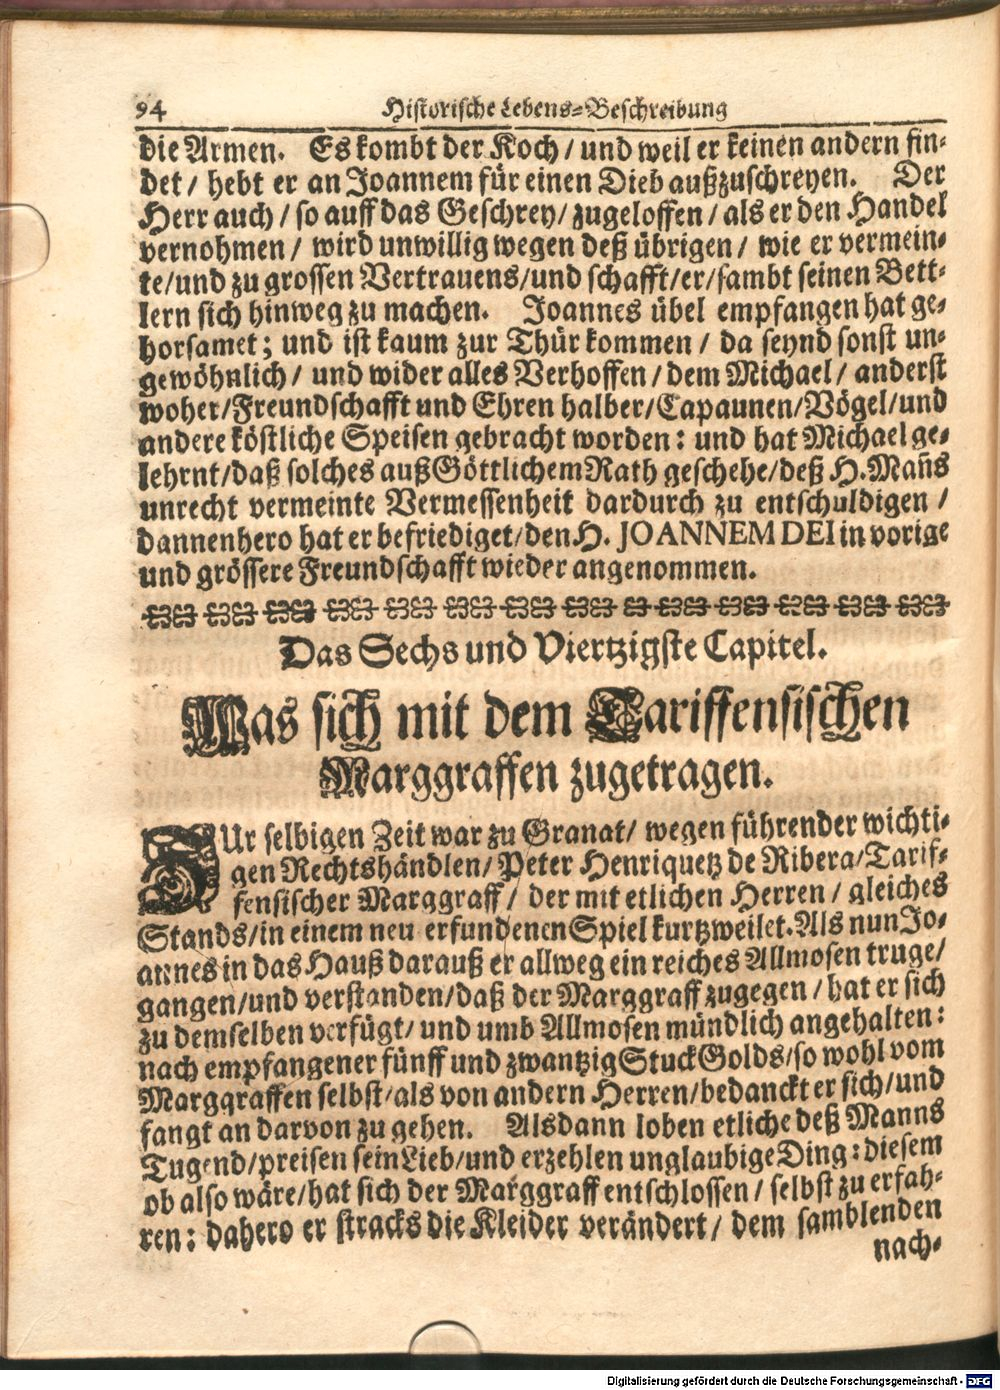 94 Historische Lebens-Beschreibung
die Armen. Es kombt der Koch / und weil er keinen andern fin-
det / hebt er an Joannem für einen Dieb außzuschreyen. Der
Herr auch / so auff das Geschrey / zugeloffen / als er den Handel
vernohmen / wird unwillig wegen deß übrigen / wie er vermein-
te / und zu grossen Vertrauens / und schafft / er / sambt seinen Bett-
lern sich hinweg zu machen. Joannes übel empfangen hat ge-
horsamet; und ist kaum zur Thür kommen / da seynd sonst un-
gewöhnlich / und wider alles Verhoffen / dem Michael / anderst
woher / Freundschafft und Ehren halber / Capaunen / Vögel / und
andere köstliche Speisen gebracht worden: und hat Michael ge-
lehrnt / daß solches auß Göttlichem Rath geschehe / deß H. Mañs
unrecht vermeinte Vermessenheit dardurch zu entschuldigen /
dannenhero hat er befriediget / den H. JOANNEM DEI in vorige
und grössere Freundschafft wieder angenommen.
Das Sechs und Viertzigste Capitel.
Was sich mit dem Tariffensischen
Marggraffen zugetragen.
ZUr selbigen Zeit war zu Granat / wegen führender wichti-
gen Rechtshändlen / Peter Henriquetz de Ribera / Tarif-
fensischer Marggraff / der mit etlichen Herren / gleiches
Stands / in einem neu erfundenen Spiel kurtzweilet. Als nun Jo-
annes in das Hauß darauß er allweg ein reiches Allmosen truge /
gangen / und verstanden / daß der Marggraff zugegen / hat er sich
zu demselben verfügt / und umb Allmosen mündlich angehalten:
nach empfangener fünff und zwantzig Stuck Golds / so wohl vom
Marggraffen selbst / als von andern Herren / bedanckt er sich / und
fangt an darvon zu gehen. Alsdann loben etliche deß Manns
Tugend / preisen sein Lieb / und erzehlen unglaubige Ding: diesem
ob also wäre / hat sich der Marggraff entschlossen / selbst zu erfah-
ren: dahero er stracks die Kleider verändert / dem samblenden
nach-
Digitalisierung gefördert durch die Deutsche Forschungsgemeinschaft - DFG